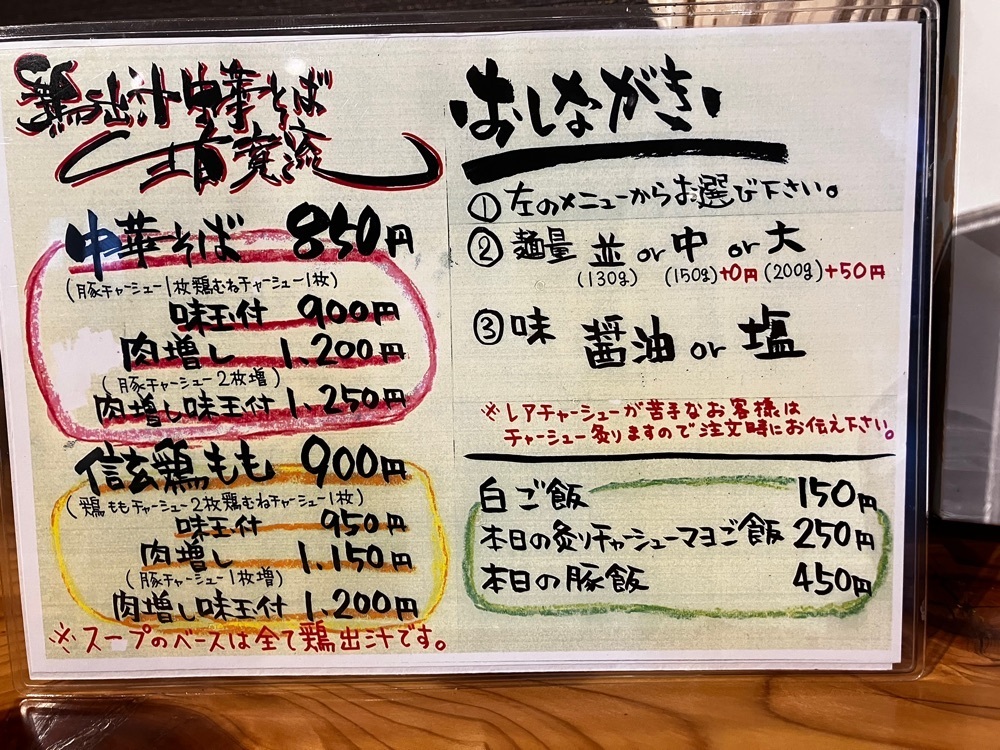 鶏出汁中華そば
中華そば 850円
(豚チャーシュー1枚鶏むねチャーシュー1枚)
味玉付 900円
肉増し 1,200円
(豚チャーシュー2枚増)
肉増し味玉付 1,250円
信玄鶏もも 900円
(鶏ももチャーシュー2枚鶏むねチャーシュー1枚)
味玉付 950円
肉増し 1,150円
(豚チャーシュー1枚増)
肉増し味玉付 1,200円
※スープのベースは全て鶏出汁です。
おしながき
①左のメニューからお選び下さい。
②麺量 並 or 中 or 大
(130g) (150g)+0円 (200g)+50円
③味 醤油 or 塩
※レアチャーシューが苦手なお客様は
チャーシュー炙りますので注文時にお伝え下さい。
白ご飯 150円
本日の炙りチャーシューマヨご飯 250円
本日の豚飯 450円